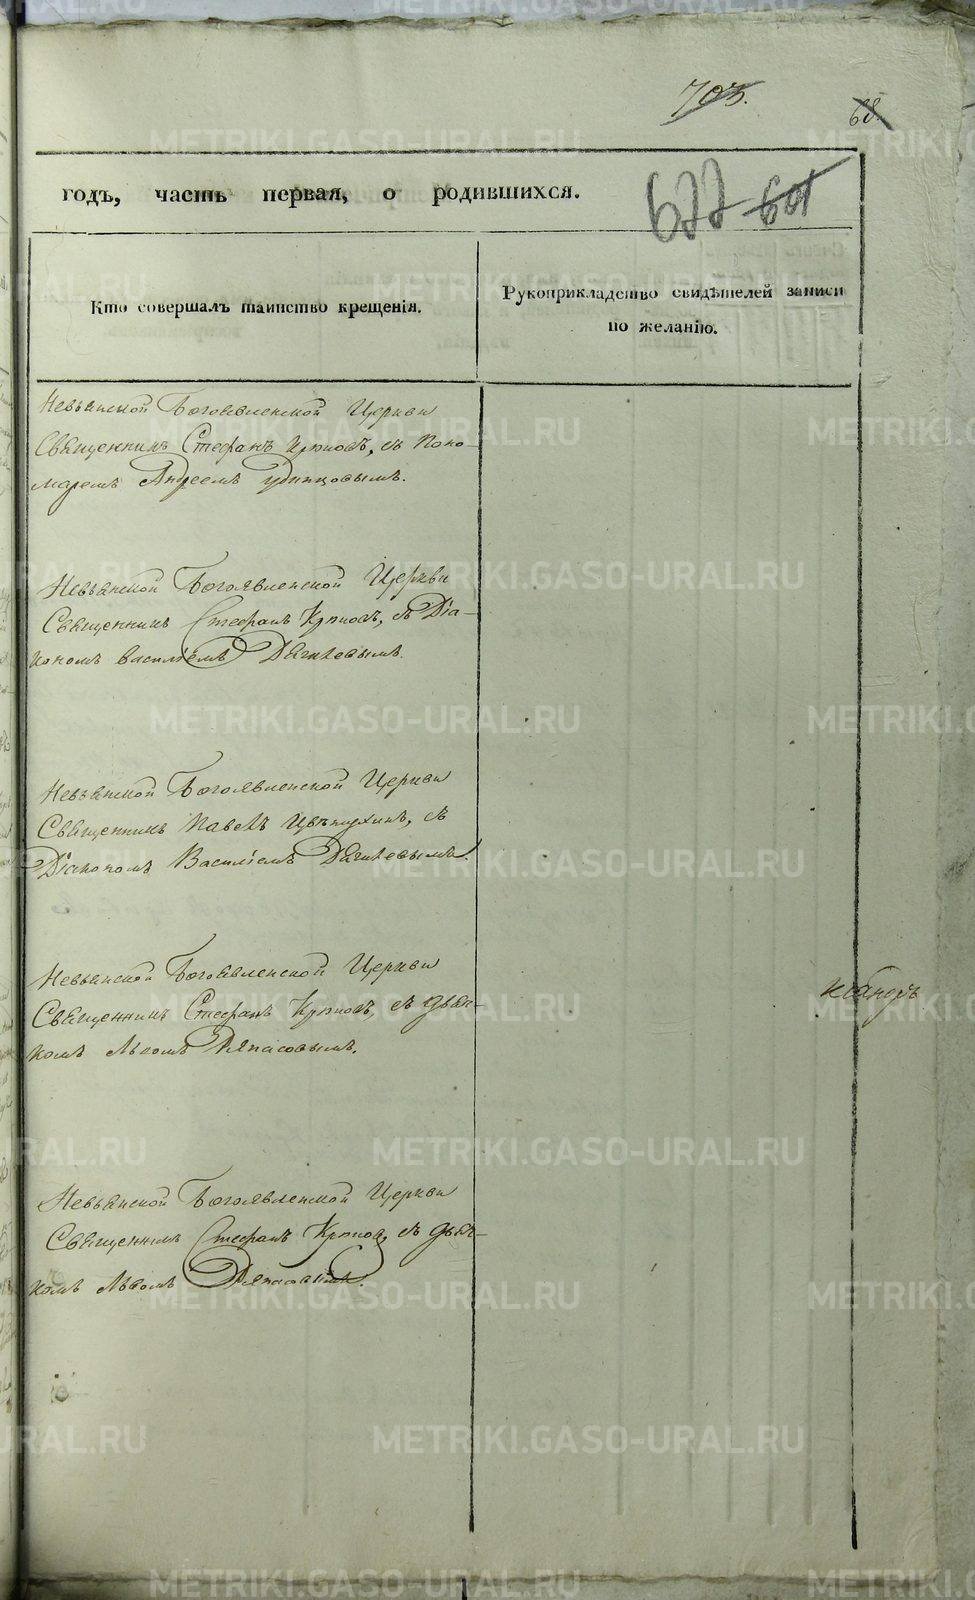 703.
68.
годъ, часть первая, о родившихся.
677 601
Кто совершалъ таинство крещенія.
Рукоприкладство свидѣтелей записи
по желанію.
Невьянской Богоявленской Церкви
Священникъ Стефанъ Крюковъ, съ Поно-
маремъ Андреемъ Удинцовымъ.
Невьянской Богоявленской Церкви
Священникъ Стефанъ Крюковъ, съ Діа-
кономъ Василіемъ Дягилевымъ.
Невьянской Богоявленской Церкви
Священникъ Павелъ Цвѣтухинъ, съ
Діакономъ Василіемъ Дягилевымъ.
Невьянской Богоявленской Церкви
Священникъ Стефанъ Крюковъ, съ дья-
комъ Львомъ Ляпасовымъ.
Невьянской Богоявленской Церкви
Священникъ Стефанъ Крюковъ, съ дья-
комъ Львомъ
METRIKI.GASO-URAL.RU